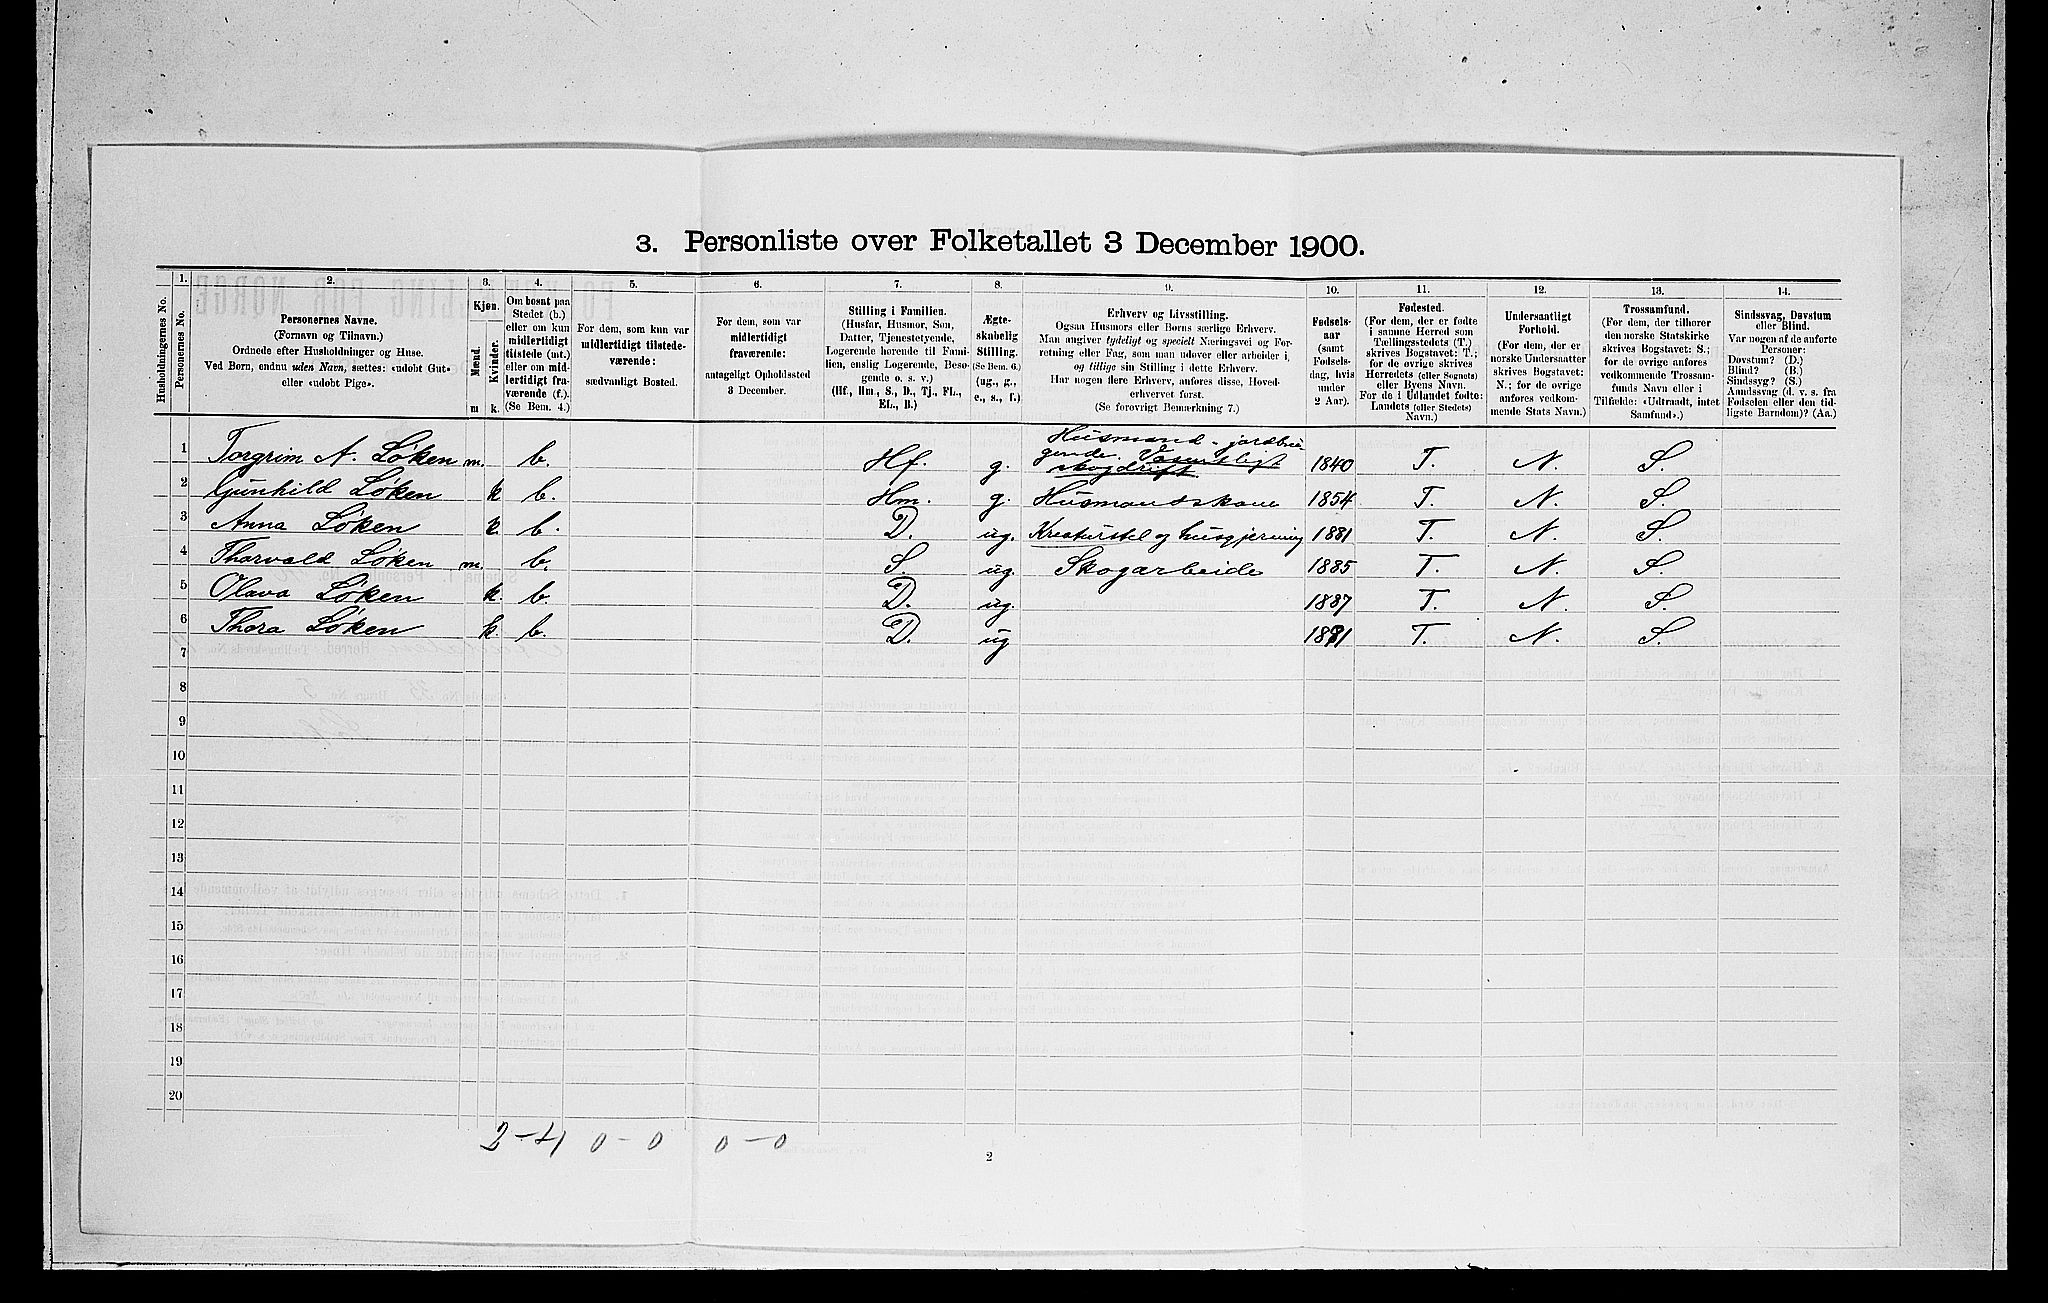 3. Personliste over Folketallet 3 December 1900.
1. 2. 3. 4. 5. 6. 7. 8. 9. 10. 11. 12. 13. 14.
Husholdningernes No.
Personernes No.
Personernes Navne.
(Fornavn og Tilnavn.)
Ordnede efter Husholdninger og Huse.
Ved Børn, endnu uden Navn, sættes: «udøbt Gut»
eller «udøbt Pige».
Kjøn.
Mænd.
Kvinder.
m k.
Om bosat paa
Stedet (b.)
eller om kun
midlertidigt
tilstede (mt.)
eller om mid-
lertidigt fra-
værende (f.).
(Se Bem. 4.)
For dem, som kun var
midlertidigt tilstede-
værende:
sædvanligt Bosted.
For dem, som var
midlertidigt
fraværende:
antageligt Opholdssted
3 December.
Stilling i Familien.
(Husfar, Husmor, Søn,
Datter, Tjenestetyende,
Logerende hørende til Fami-
lien, enslig Logerende, Besø-
gende o. s. v.)
(Hf., Hm., S., D., Tj., FL.,
EL., B.)
Ægte-
skabelig
Stilling.
(Se Bem. 6.)
(ug., g.,
e., s., f.)
Erhverv og Livsstilling.
Ogsaa Husmors eller Børns særlige Erhverv.
Man angiver tydeligt og specielt Næringsvei og For-
retning eller Fag, som man udøver eller arbeider i,
og tillige sin Stilling i dette Erhverv.
Har nogen flere Erhverv, anføres disse, Hoved-
erhvervet først.
(Se forøvrigt Bemærkning 7.)
Fødsels-
aar
(samt
Fødsels-
dag, hvis
under
2 Aar).
Fødested.
(For dem, der er fødte
i samme Herred som
Tællingsstedets (T.)
skrives Bogstavet: T.;
for de øvrige skrives
Herredets (eller Sognets)
eller Byens Navn.
For de i Udlandet fødte:
Landets (eller Stedets)
Navn.)
Undersaatligt
Forhold.
(For dem, der er
norske Undersaatter
skrives Bogstavet:
N.; for de øvrige
anføres vedkom-
mende Stats Navn.)
Trossamfund.
(For dem, der tilhører
den norske Statskirke
skrives Bogstavet: S.;
for de øvrige anføres
vedkommende Trossam-
funds Navn eller i
Tilfælde: «Udtraadt, intet
Samfund».)
Sindssvag, Døvstum
eller Blind.
Var nogen af de anførte
Personer:
Døvstum? (D.)
Blind? (B.)
Sindssyg? (S.)
Aandssvag (d. v. s. fra
Fødselen eller den tid-
ligste Barndom)? (Aa.)
1 Torgrim A. Løken m. b. Hf. g. Husmand - jordbru-
gende. Væsentligt
skogdrift 1840 T. N. S.
2 Gunhild Løken k b. Hm. g. Husmandskone 1854 T. N. S.
3 Anna Løken k. b. D. ug. Kreaturstel og husgjerning 1881 T. N. S.
4 Thorvald Løken m. b. S. ug. Skogarbeide 1885 T. N. S.
5 Olava Løken k. b. D. ug. 1887 T. N. S.
6 Thora Løken k. b. D. ug T. N. S.
7
8
9
10
11
12
13
14
15
16
17
18
19
20
2-4 0-0 0-0
2